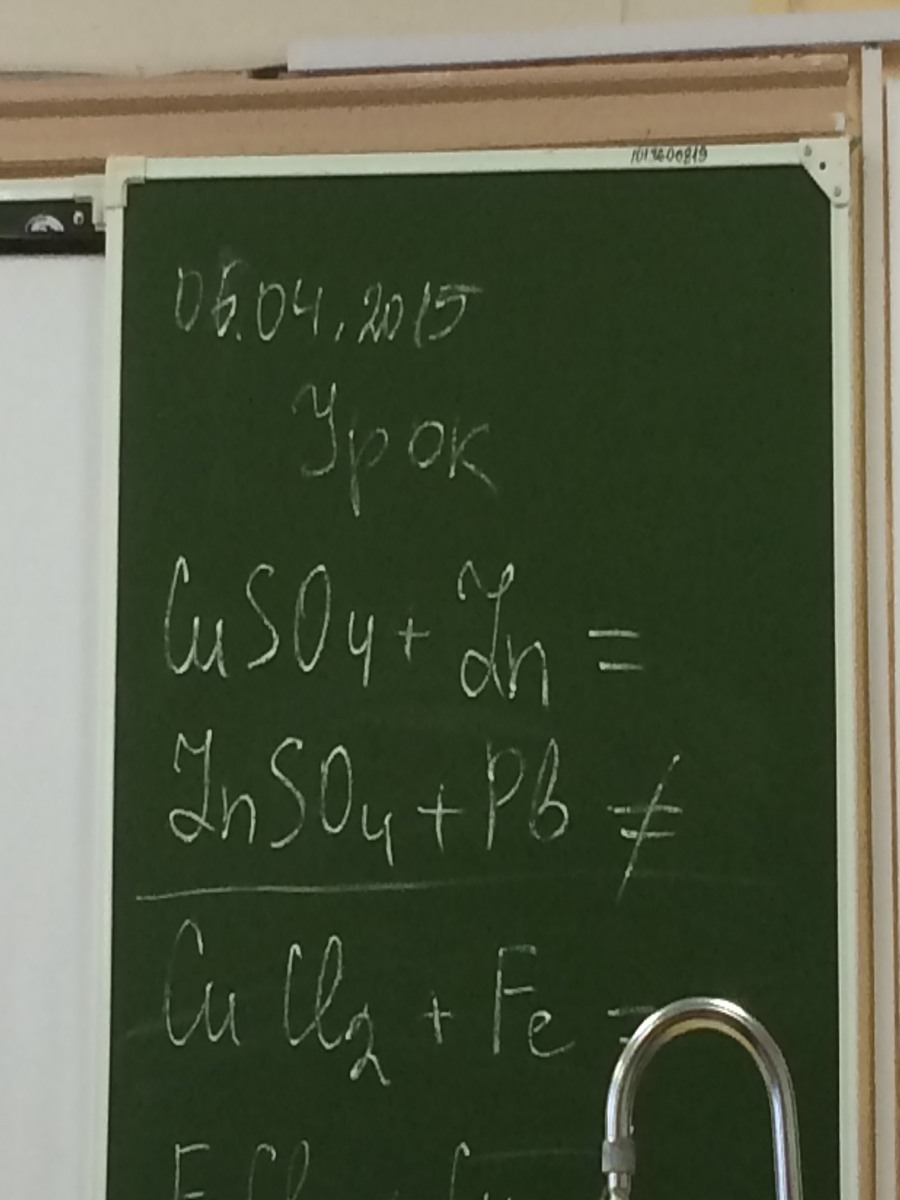 1013600819
06.04.2015
Урок
CuSO₄ + Zn =
ZnSO₄ + Pb ≠
CuCl₂ + Fe =